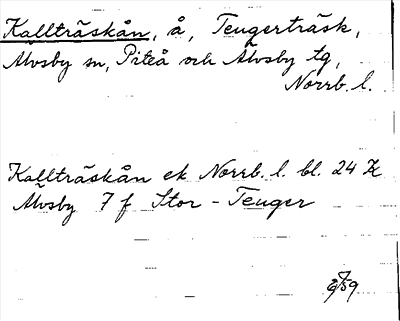 Kallträskån, å, Teugerträsk,
Älvsby sn, Piteå och Älvsby tg,
Norrb. l.
Kallträskån ek Norrb. l. bl. 24
Älvsby 7 f Stor-Teuger